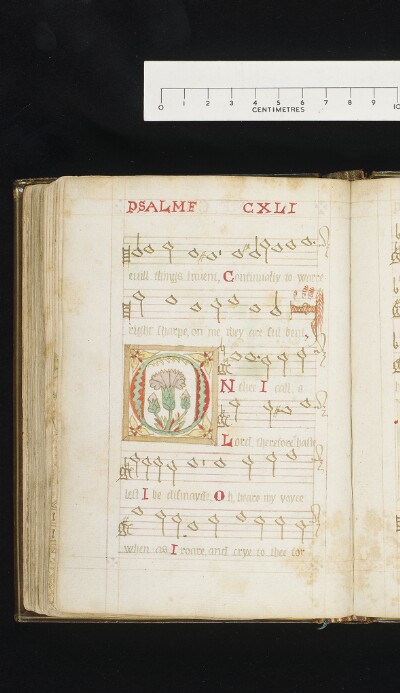 0 1 2 3 4 5 6 7 8 9 10
CENTIMETRES
PSALME CXLI
euill things invent, Continually to warre
right sharpe, on me they are ful bent,
ON thee I call, o
Lord, therefore hast
best I be dismayde, Oh, heare my voyce
when as I roare, and crye to thee for